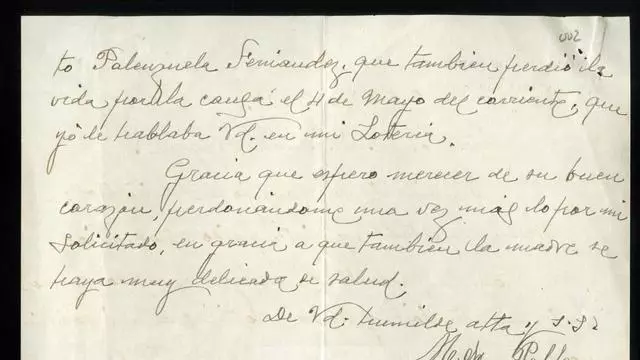 002
to Palenzuela Fernandez, que tambien perdió la
vida por la causa el 4 de Mayo del corriente, que
yo le hablaba Vd. en mi
Gracia que espero merecer de su buen
corazón, perdonándome una vez mas lo por mi
solicitado, en gracia a que tambien la madre se
haya muy delicada de salud.
De Vd. humilde atta y S.S.